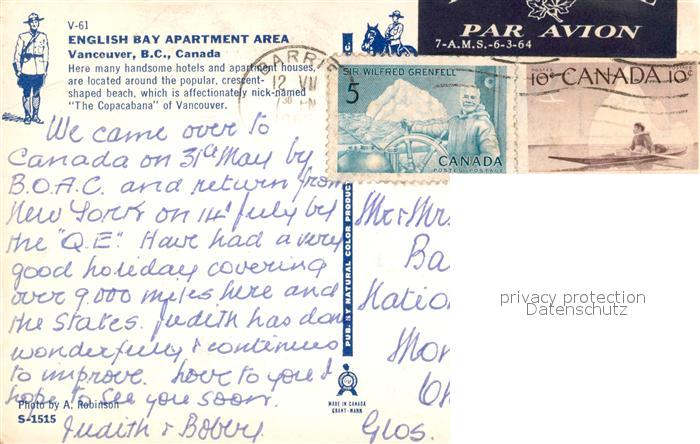 V-61
ENGLISH BAY APARTMENT AREA
Vancouver, B.C., Canada
Here many handsome hotels and apartment houses,
are located around the popular, crescent-
shaped beach, which is affectionately nick-named
"The Copacabana" of Vancouver.
We came over to
Canada on 31st May by
B.O.A.C. and return from
New York on 14th July by
the "Q.E". Have had a very
good holiday covering
over 9,000 miles here and
the States. Judith has done
wonderfully & continues
to improve. Love to you &
hope to see you soon.
Judith &
Photo by A. Robinson
S-1515
PUB. BY NATURAL COLOR PRODUC
MADE IN CANADA
GRANT-MANN
PAR AVION
7-A.M.S.-6-3-64
12 VII
SIR WILFRED GRENFELL
5
CANADA
POSTES POSTAGE
10¢ CANADA 10¢
Mr & Mrs
Ba
Natio
Mon
Ch
Glos.
privacy protection
Datenschutz